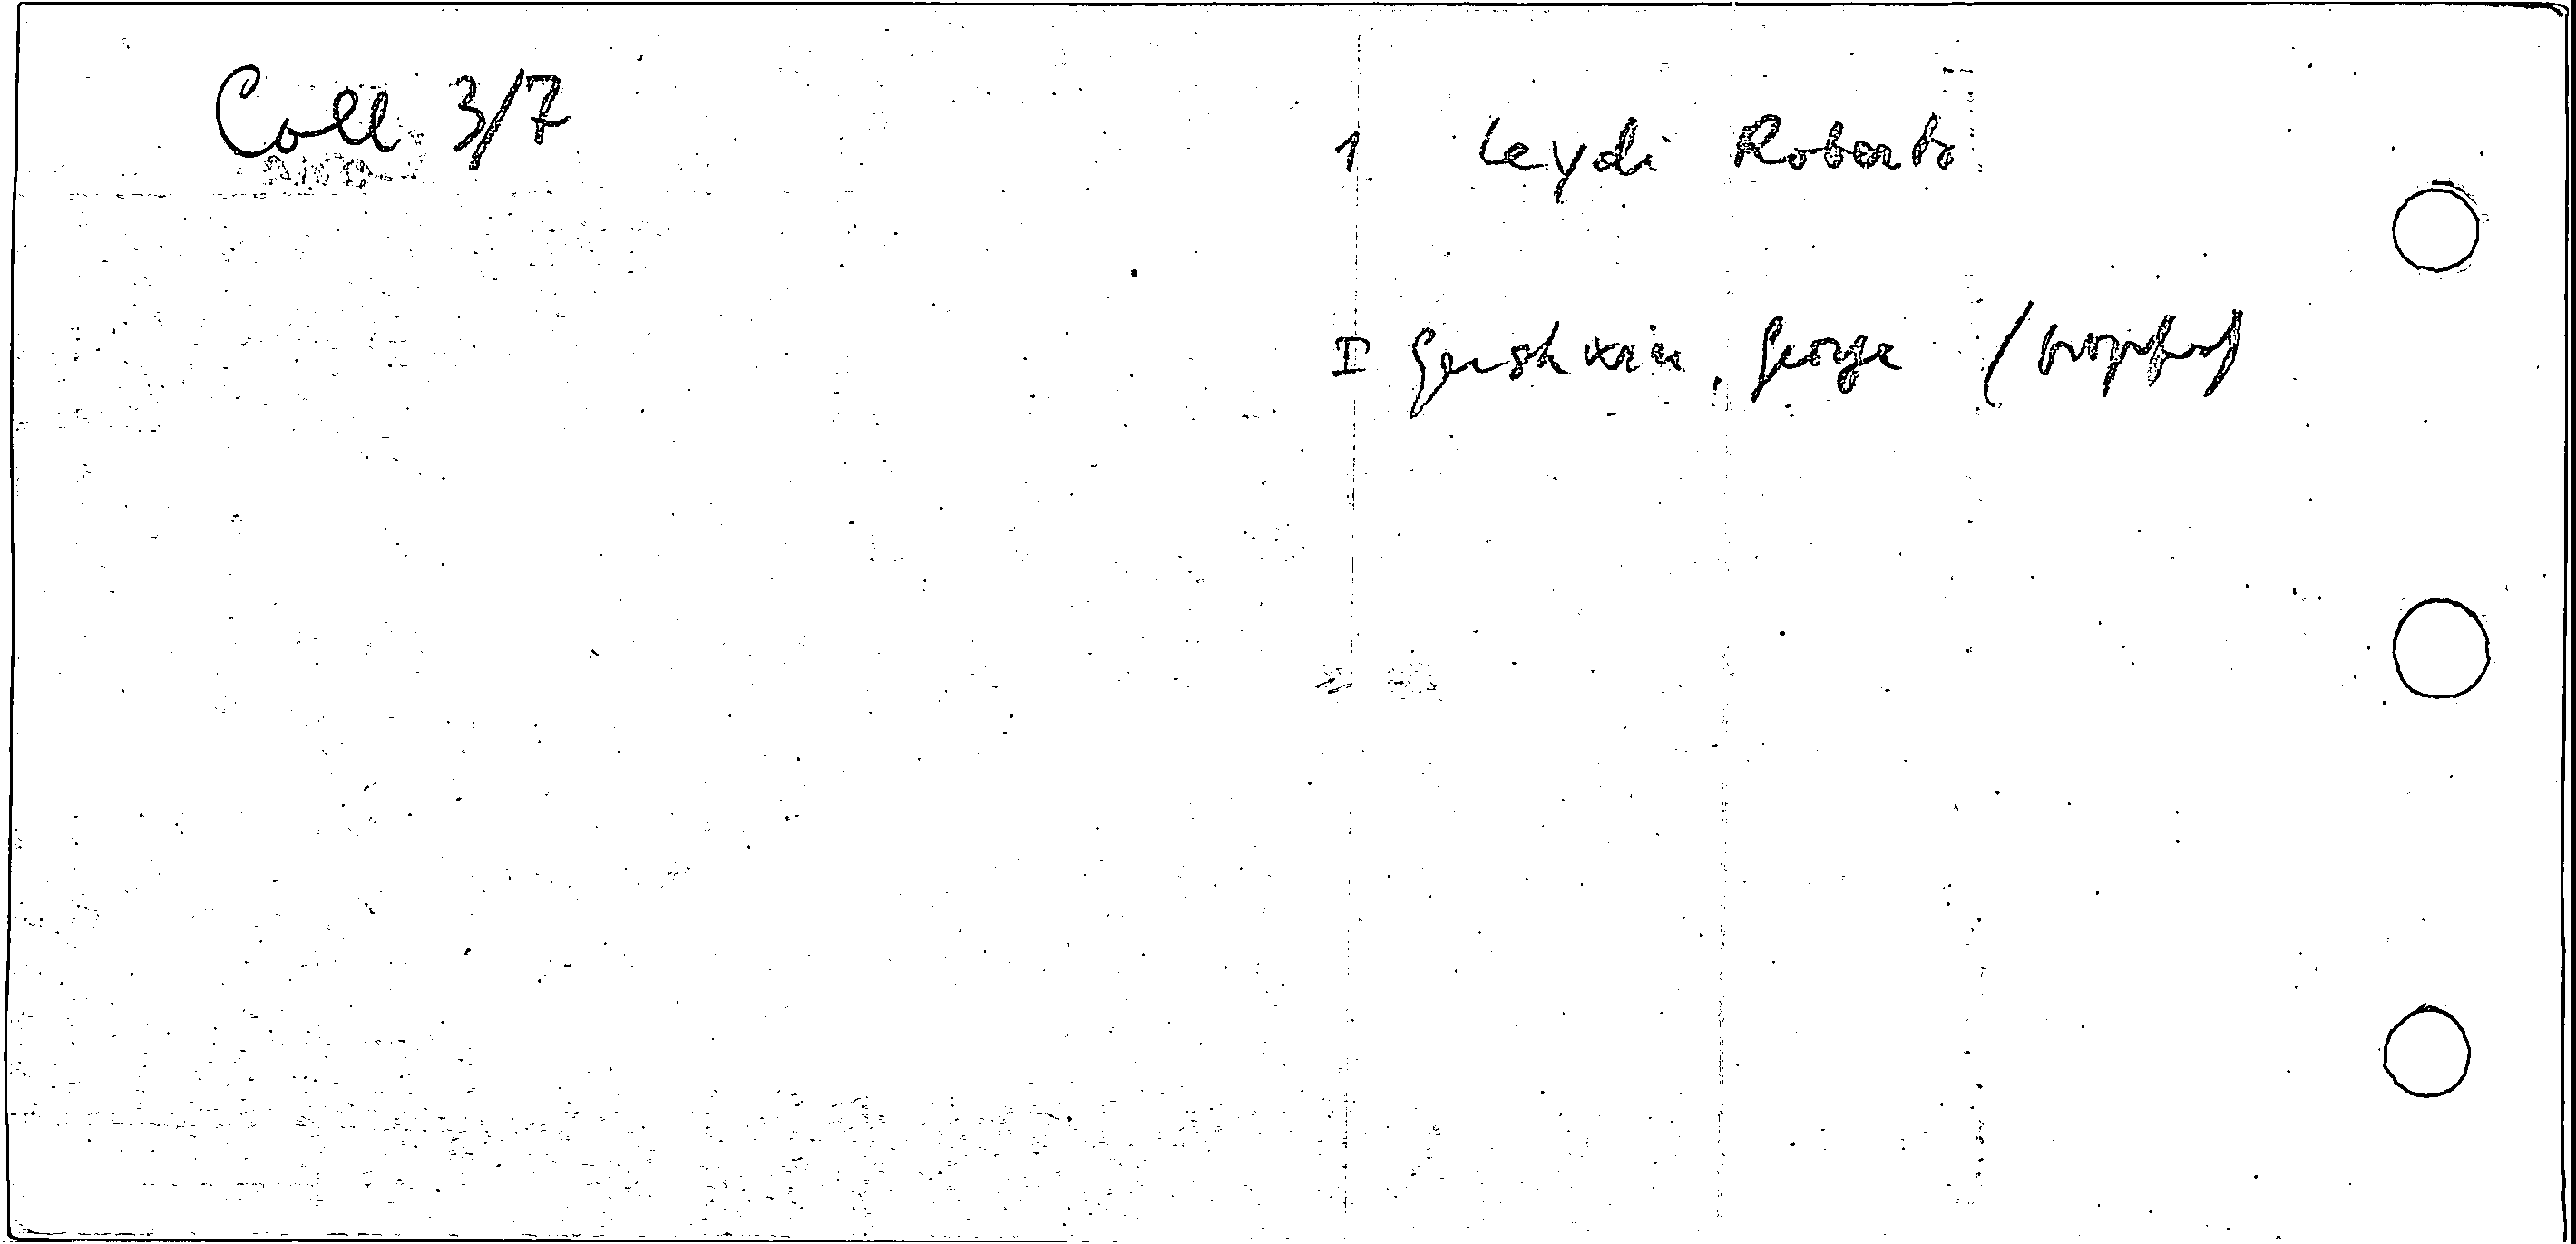 Coll 3/7
1 Leydi Roberto
I Gershwin, George